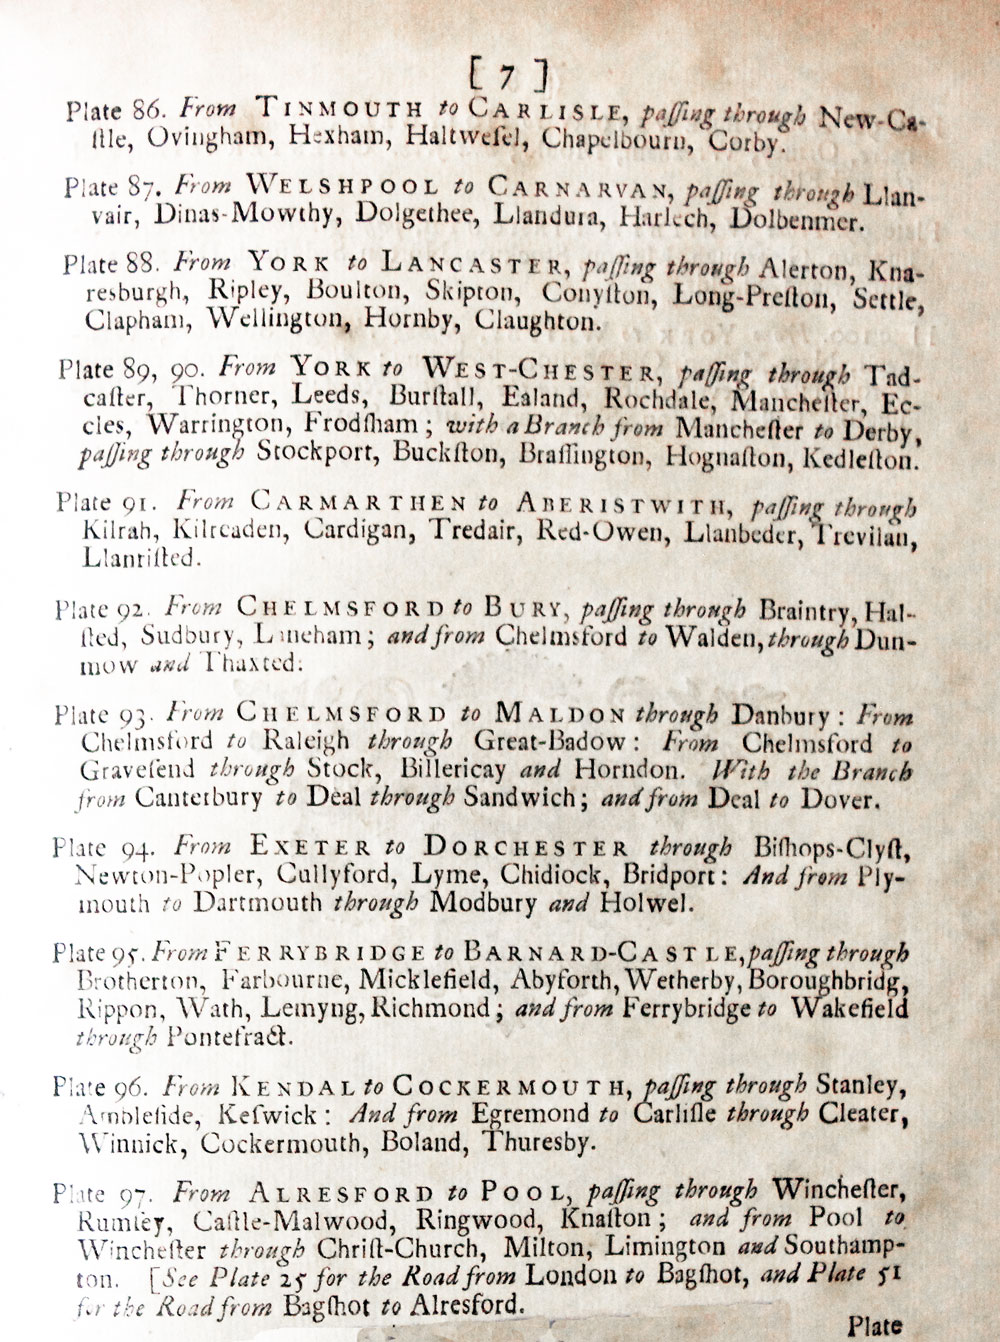 [ 7 ]
Plate 86. From TINMOUTH to CARLISLE, paſſing through New-Ca-
ſtle, Ovingham, Hexham, Haltweſel, Chapelbourn, Corby.
Plate 87. From WELSHPOOL to CARNARVAN, paſſing through Llan-
vair, Dinas-Mowthy, Dolgethee, Llandura, Harlech, Dolbenmer.
Plate 88. From YORK to LANCASTER, paſſing through Alerton, Kna-
resburgh, Ripley, Boulton, Skipton, Conyſton, Long-Preſton, Settle,
Clapham, Wellington, Hornby, Claughton.
Plate 89, 90. From YORK to WEST-CHESTER, paſſing through Tad-
caſter, Thorner, Leeds, Burſtall, Ealand, Rochdale, Mancheſter, Ec-
cles, Warrington, Frodſham ; with a Branch from Mancheſter to Derby,
paſſing through Stockport, Buckſton, Braſſington, Hognaſton, Kedleſton.
Plate 91. From CARMARTHEN to ABERISTWITH, paſſing through
Kilrah, Kilreaden, Cardigan, Tredair, Red-Owen, Llanbeder, Trevilian,
Llanriſted.
Plate 92. From CHELMSFORD to BURY, paſſing through Braintry, Hal-
ſted, Sudbury, Laneham ; and from Chelmsford to Walden, through Dun-
mow and Thaxted.
Plate 93. From CHELMSFORD to MALDON through Danbury : From
Chelmsford to Raleigh through Great-Badow : From Chelmsford to
Graveſend through Stock, Billericay and Horndon. With the Branch
from Canterbury to Deal through Sandwich ; and from Deal to Dover.
Plate 94. From EXETER to DORCHESTER through Biſhops-Clyſt,
Newton-Popler, Cullyford, Lyme, Chidiock, Bridport : And from Ply-
mouth to Dartmouth through Modbury and Holwel.
Plate 95. From FERRYBRIDGE to BARNARD-CASTLE, paſſing through
Brotherton, Farbourne, Micklefield, Abyforth, Wetherby, Boroughbridg,
Rippon, Wath, Lemyng, Richmond ; and from Ferrybridge to Wakefield
through Pontefract.
Plate 96. From KENDAL to COCKERMOUTH, paſſing through Stanley,
Ambleſide, Keſwick : And from Egremond to Carliſle through Cleater,
Winnick, Cockermouth, Boland, Thuresby.
Plate 97. From ALRESFORD to POOL, paſſing through Wincheſter,
Rumſey, Caſtle-Malwood, Ringwood, Knaſton ; and from Pool to
Wincheſter through Chriſt-Church, Milton, Limington and Southamp-
ton. [See Plate 25 for the Road from London to Bagſhot, and Plate 51
for the Road from Bagſhot to Alresford.
Plate